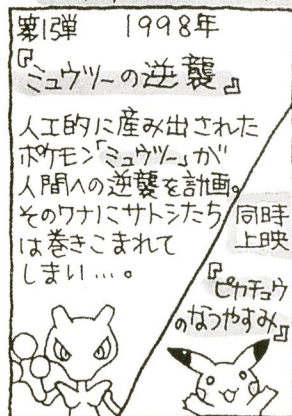 第1弾 1998年
『ミュウツーの逆襲』
人工的に産み出された
ポケモン「ミュウツー」が
人間への逆襲を計画。
そのワナにサトシたち
は巻きこまれて
しまい…。
同時
上映
『ピカチュウ
のなつやすみ』